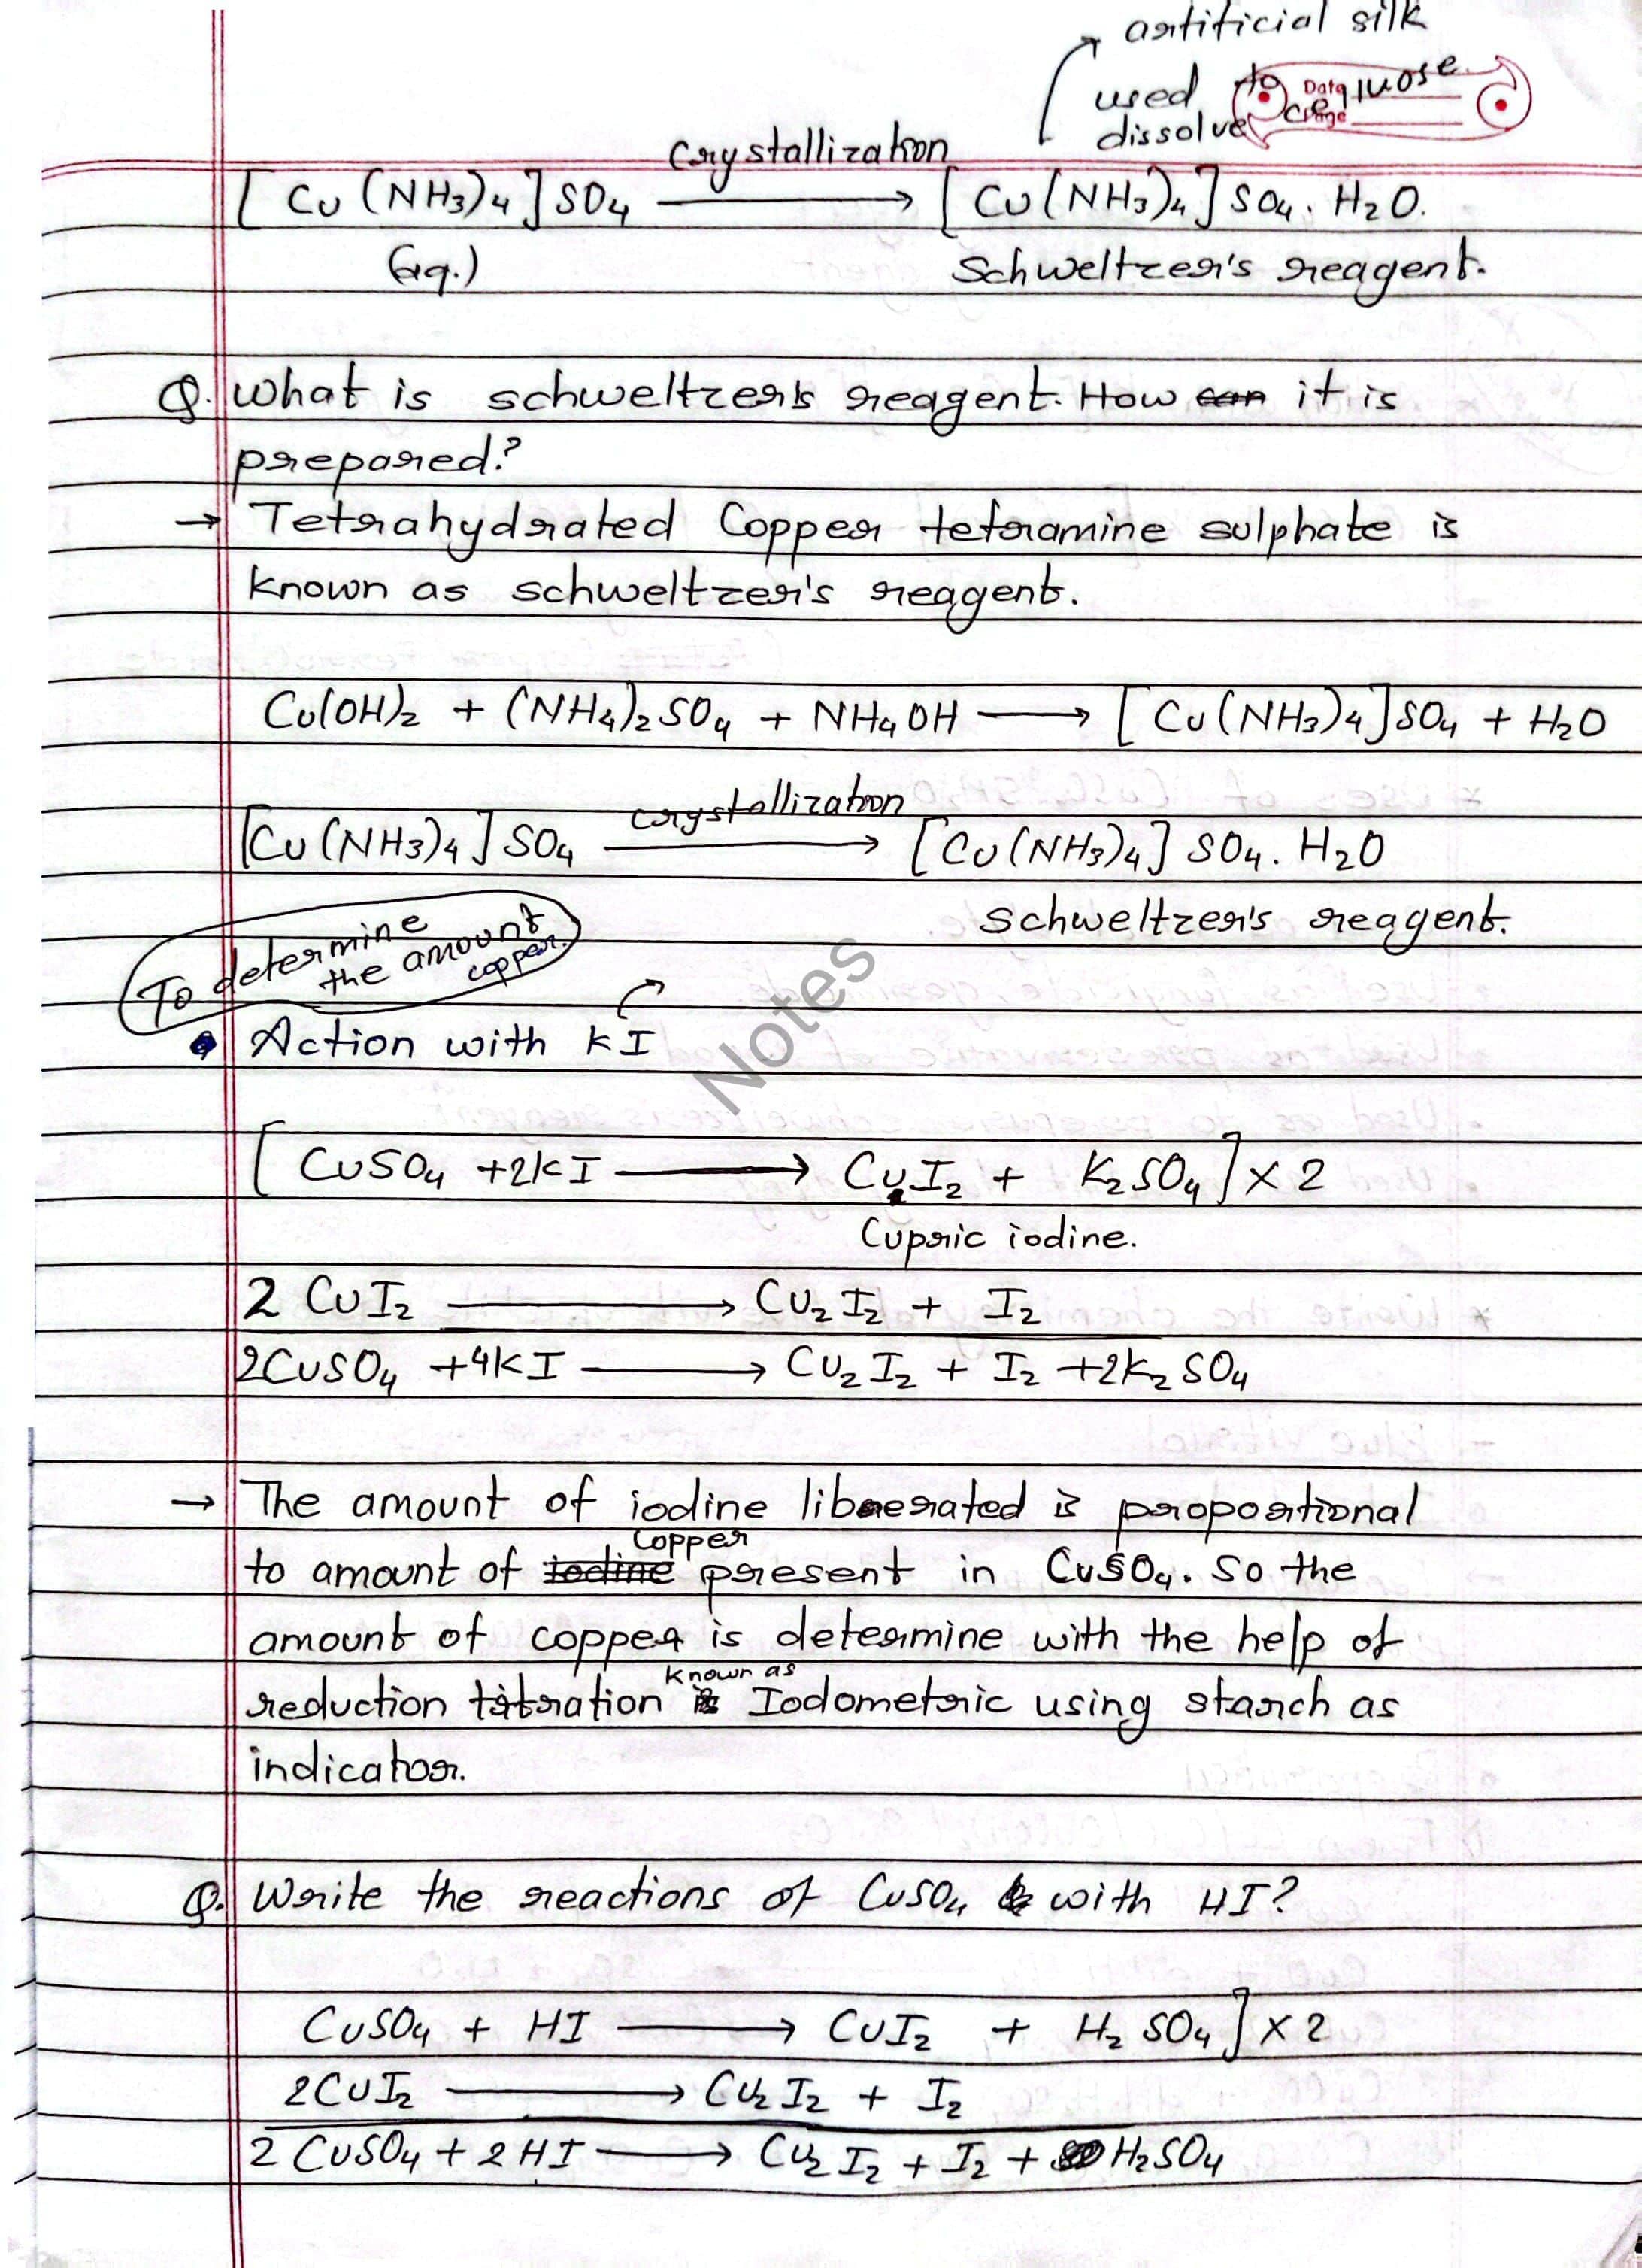 artificial silk
used to
dissolve cellulose
crystallization
[Cu(NH3)4]SO4 ⟶ [Cu(NH3)4]SO4. H2O.
(aq.) Schweltzer's reagent.
Q. What is schweltzer's reagent. How can it is
prepared?
→ Tetrahydrated Copper tetramine sulphate is
known as schweltzer's reagent.
Cu(OH)2 + (NH4)2SO4 + NH4OH ⟶ [Cu(NH3)4]SO4 + H2O
crystallization
[Cu(NH3)4]SO4 ⟶ [Cu(NH3)4]SO4. H2O
Schweltzer's reagent.
To determine
the amount
copper.
• Action with KI
Notes
[CuSO4 +2KI ⟶ CuI2 + K2SO4] × 2
Cupric iodine.
2 CuI2 ⟶ Cu2I2 + I2
2CuSO4 +4KI ⟶ Cu2I2 + I2 +2K2SO4
→ The amount of iodine liberated is proportional
copper
to amount of iodine present in CuSO4. So the
amount of copper is determine with the help of
known as
reduction titration Iodometric using starch as
indicator.
Q. Write the reactions of CuSO4 with HI?
CuSO4 + HI ⟶ CuI2 + H2SO4] × 2
2CuI2 ⟶ Cu2I2 + I2
2 CuSO4 + 2HI ⟶ Cu2I2 + I2 + H2SO4